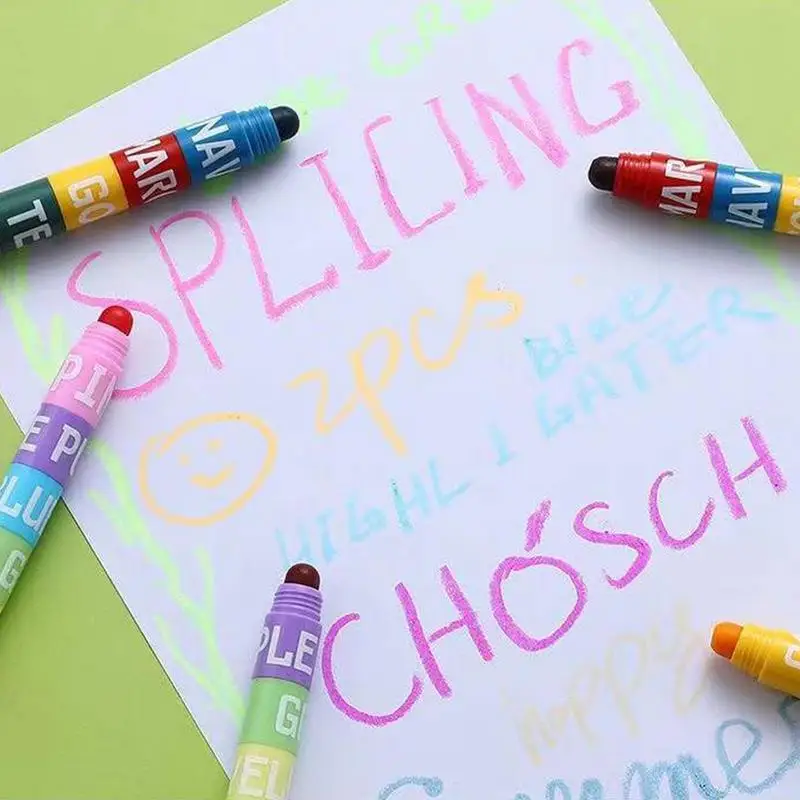 GRE
SPLICING
2pcs
Blue
HIGHLIGATER
CHÓSCH
happy
Summer
TE GO MAR NAV
MAR NAVY
PIN E PU LU G
PLE G EL